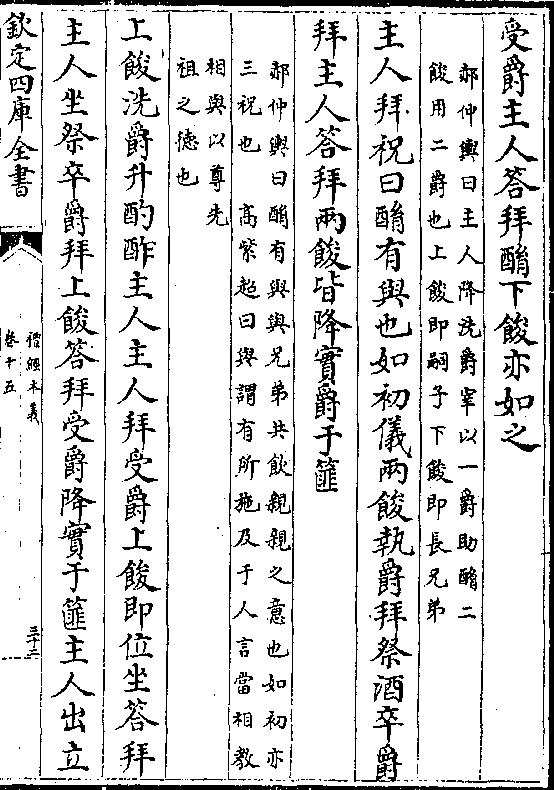 受爵主人答拜酳下餕亦如之
郝仲輿曰主人降洗爵宰以一爵助酳二
餕用二爵也上餕即嗣子下餕即長兄弟
主人拜祝曰酳有與也如初儀兩餕執爵拜祭酒卒爵
拜主人答拜兩餕皆降實爵于篚
郝仲輿曰酳有與與兄弟共飲親親之意也如初亦
三祝也　高紫超曰與謂有所施及于人言當相教
相與以尊先
祖之德也
上餕洗爵升酌酢主人主人拜受爵上餕即位坐答拜
主人坐祭卒爵拜上餕答拜受爵降實于篚主人出立
欽定四庫全書
禮經本義
卷十五
三十二